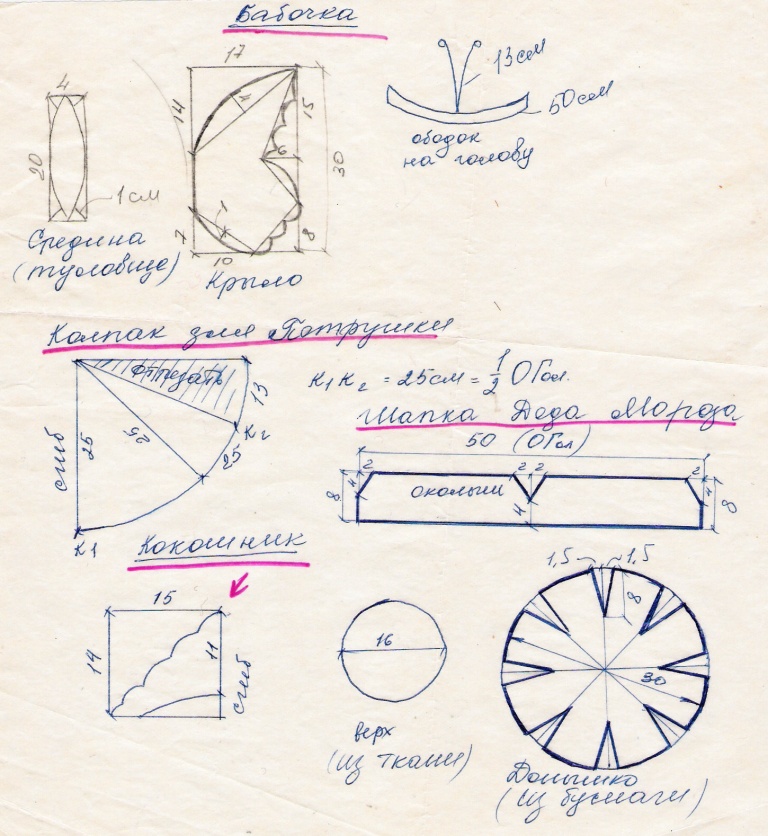 Бабочка
4
20
1 см
Средина
(туловище)
17
14
4
15
6
30
1
7
10
8
Крыло
13 см
50 см
ободок
на голову
Колпак для Петрушки
отрезать
13
К2
25
25
25
сгиб
К1
К1К2 = 25см = 1/2 ОГол.
Шапка Деда Мороза
50 (ОГол)
8
4
2
2
2
2
4
8
околыш
4
Кокошник
15
14
11
сгиб
16
верх
(из ткани)
1,5
1,5
8
30
Донышко
(из бумаги)